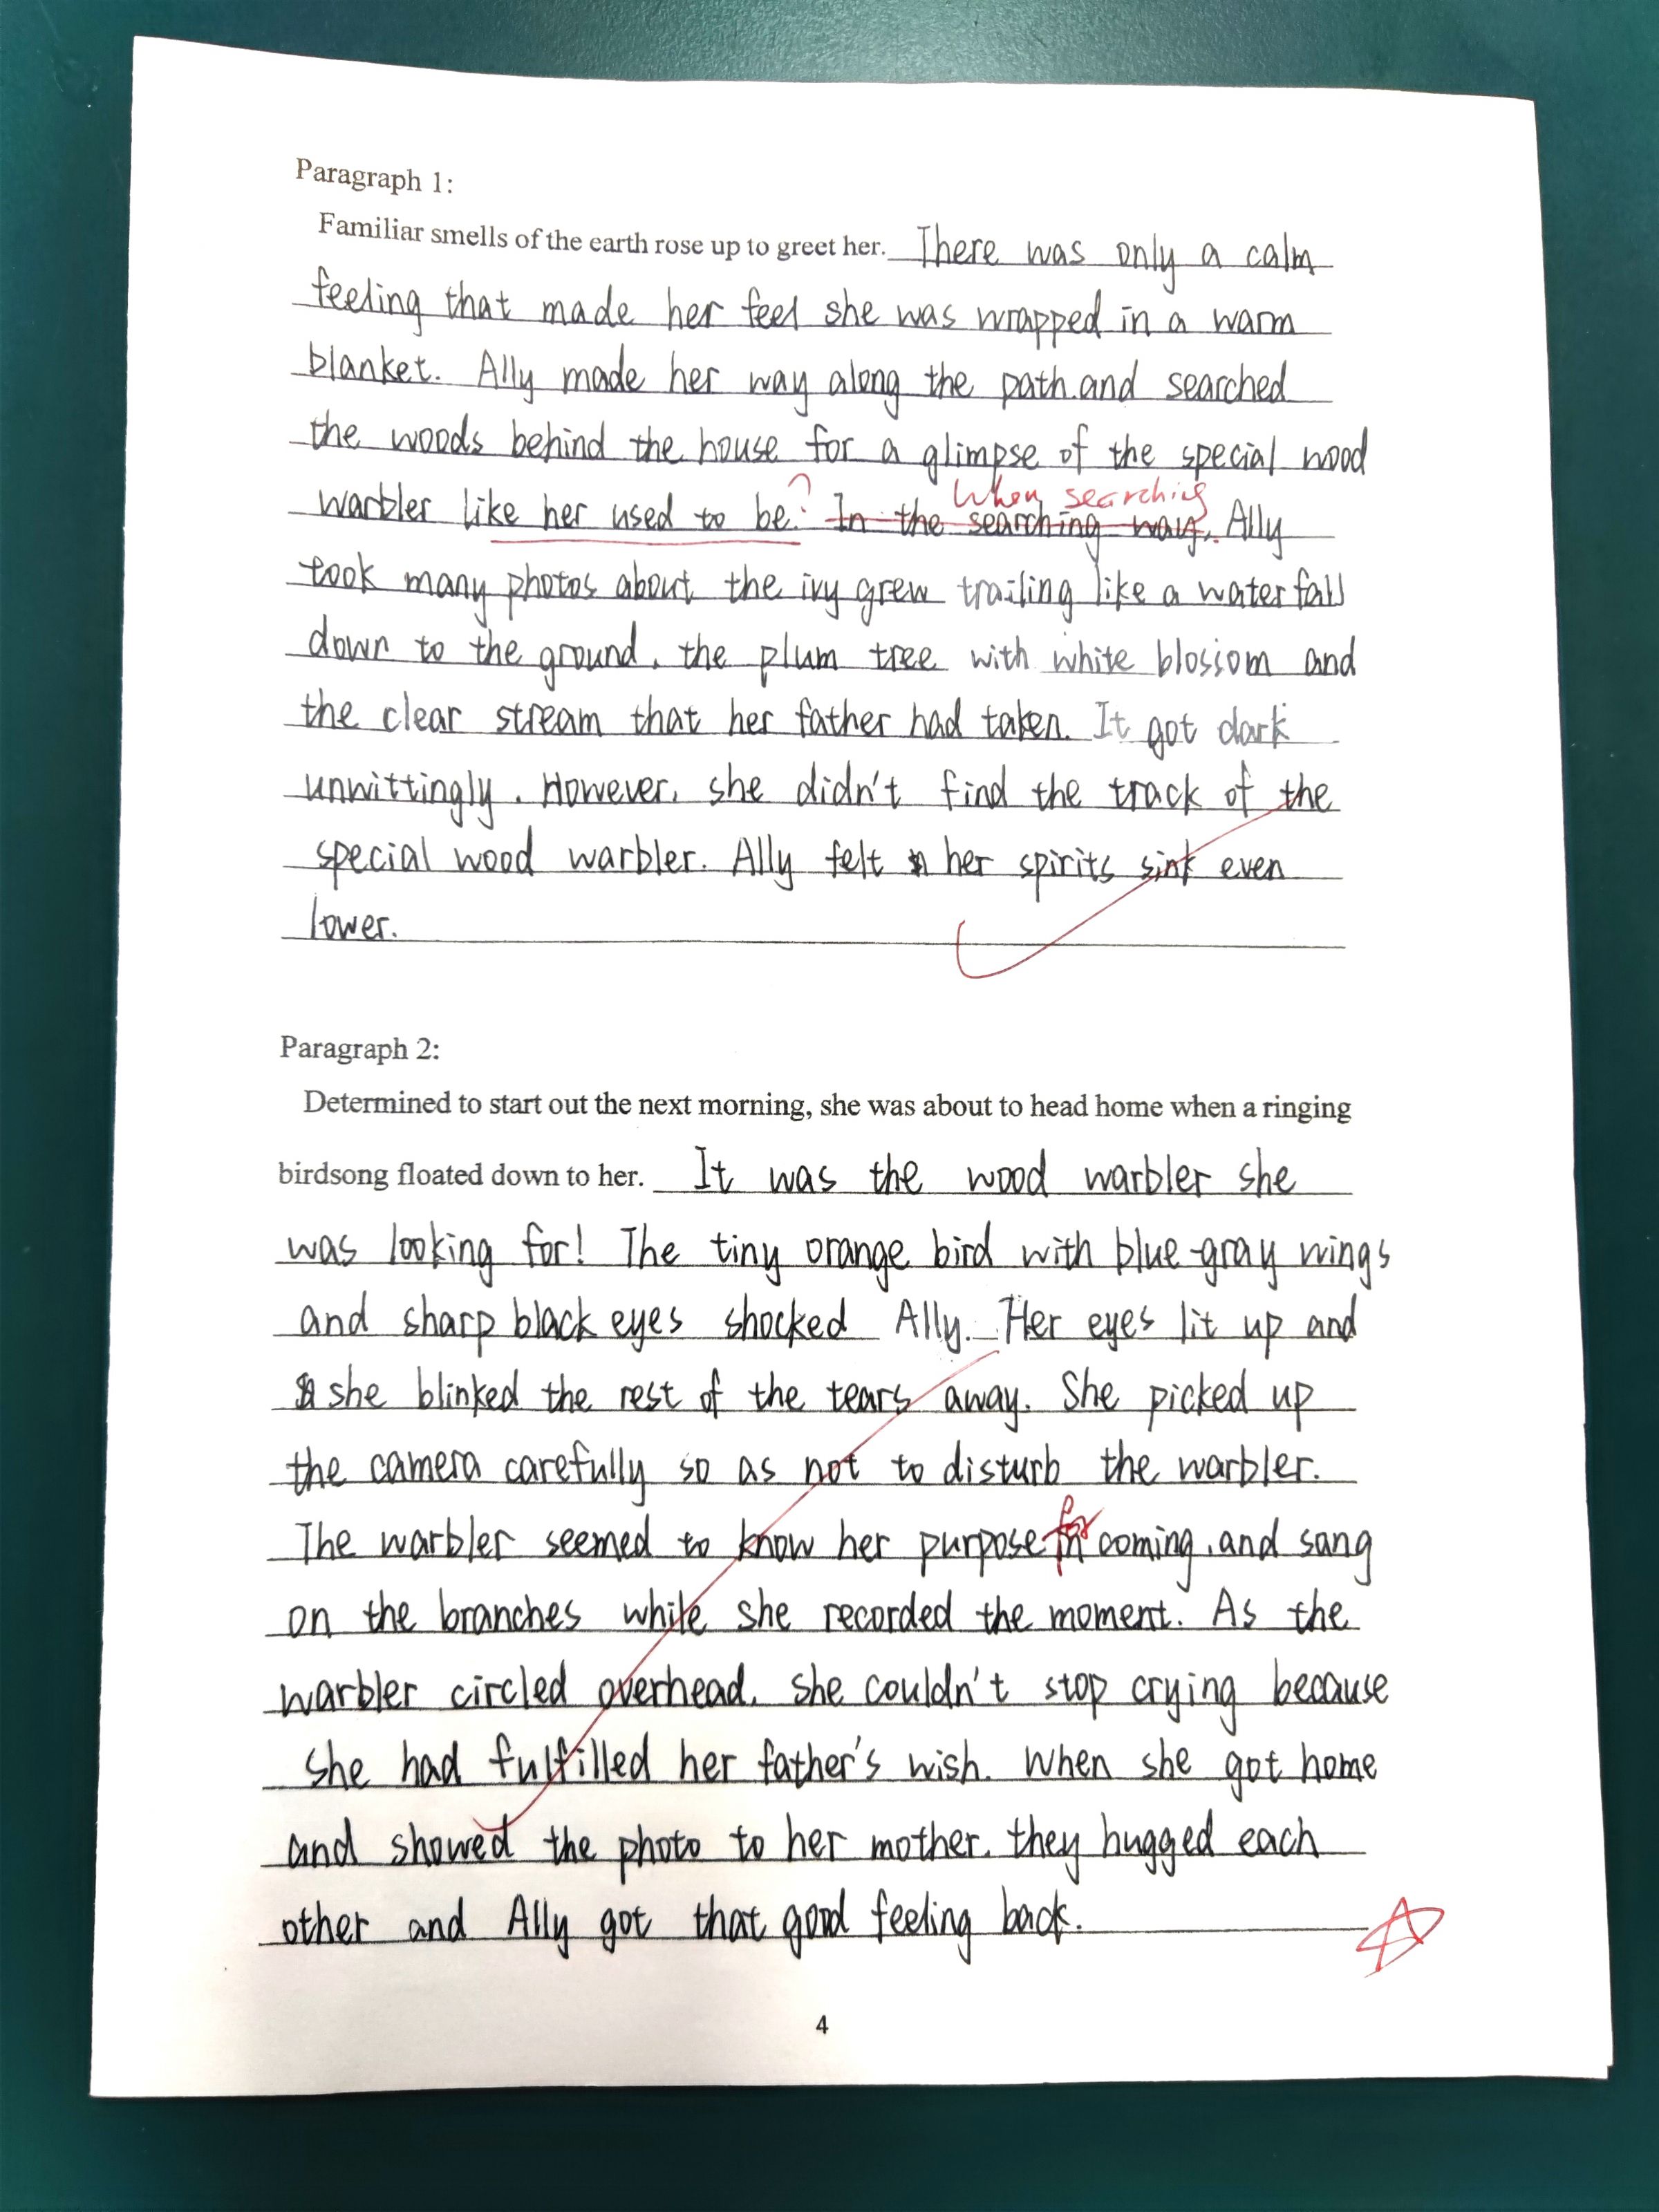 Paragraph 1:
Familiar smells of the earth rose up to greet her. There was only a calm
feeling that made her feel she was wrapped in a warm
blanket. Ally made her way along the path and searched
the woods behind the house for a glimpse of the special wood
warbler like her used to be. ? In the searching way, When searching Ally
took many photos about the ivy grew trailing like a waterfall
down to the ground, the plum tree with white blossom and
the clear stream that her father had taken. It got dark
unwittingly. However, she didn't find the track of the
special wood warbler. Ally felt her spirits sink even
lower.
Paragraph 2:
Determined to start out the next morning, she was about to head home when a ringing
birdsong floated down to her. It was the wood warbler she
was looking for! The tiny orange bird with blue-gray wings
and sharp black eyes shocked Ally. Her eyes lit up and
she blinked the rest of the tears away. She picked up
the camera carefully so as not to disturb the warbler.
The warbler seemed to know her purpose for coming, and sang
on the branches while she recorded the moment. As the
warbler circled overhead, she couldn't stop crying because
she had fulfilled her father's wish. When she got home
and showed the photo to her mother, they hugged each
other and Ally got that good feeling back.
4